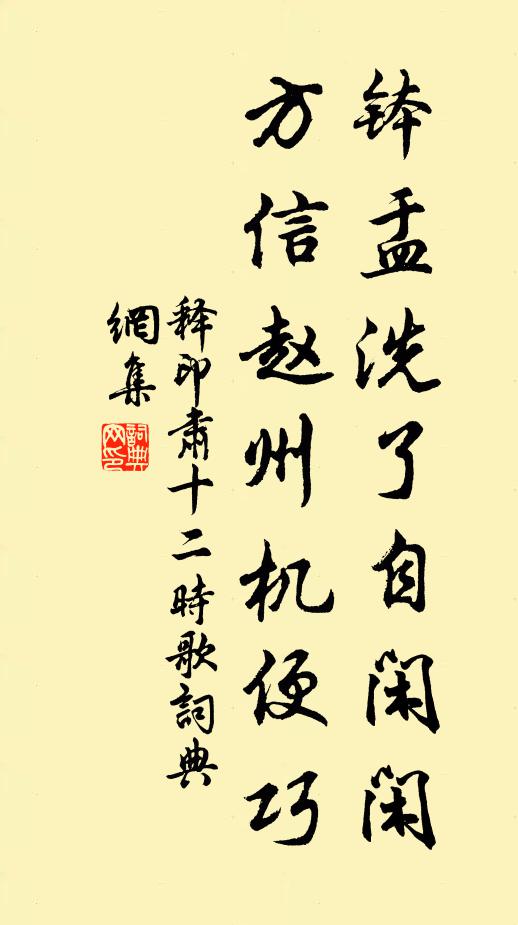 钵盂洗了自闲闲
方信赵州机便巧
释印肃十二時歌詞典
網集
詞典网印